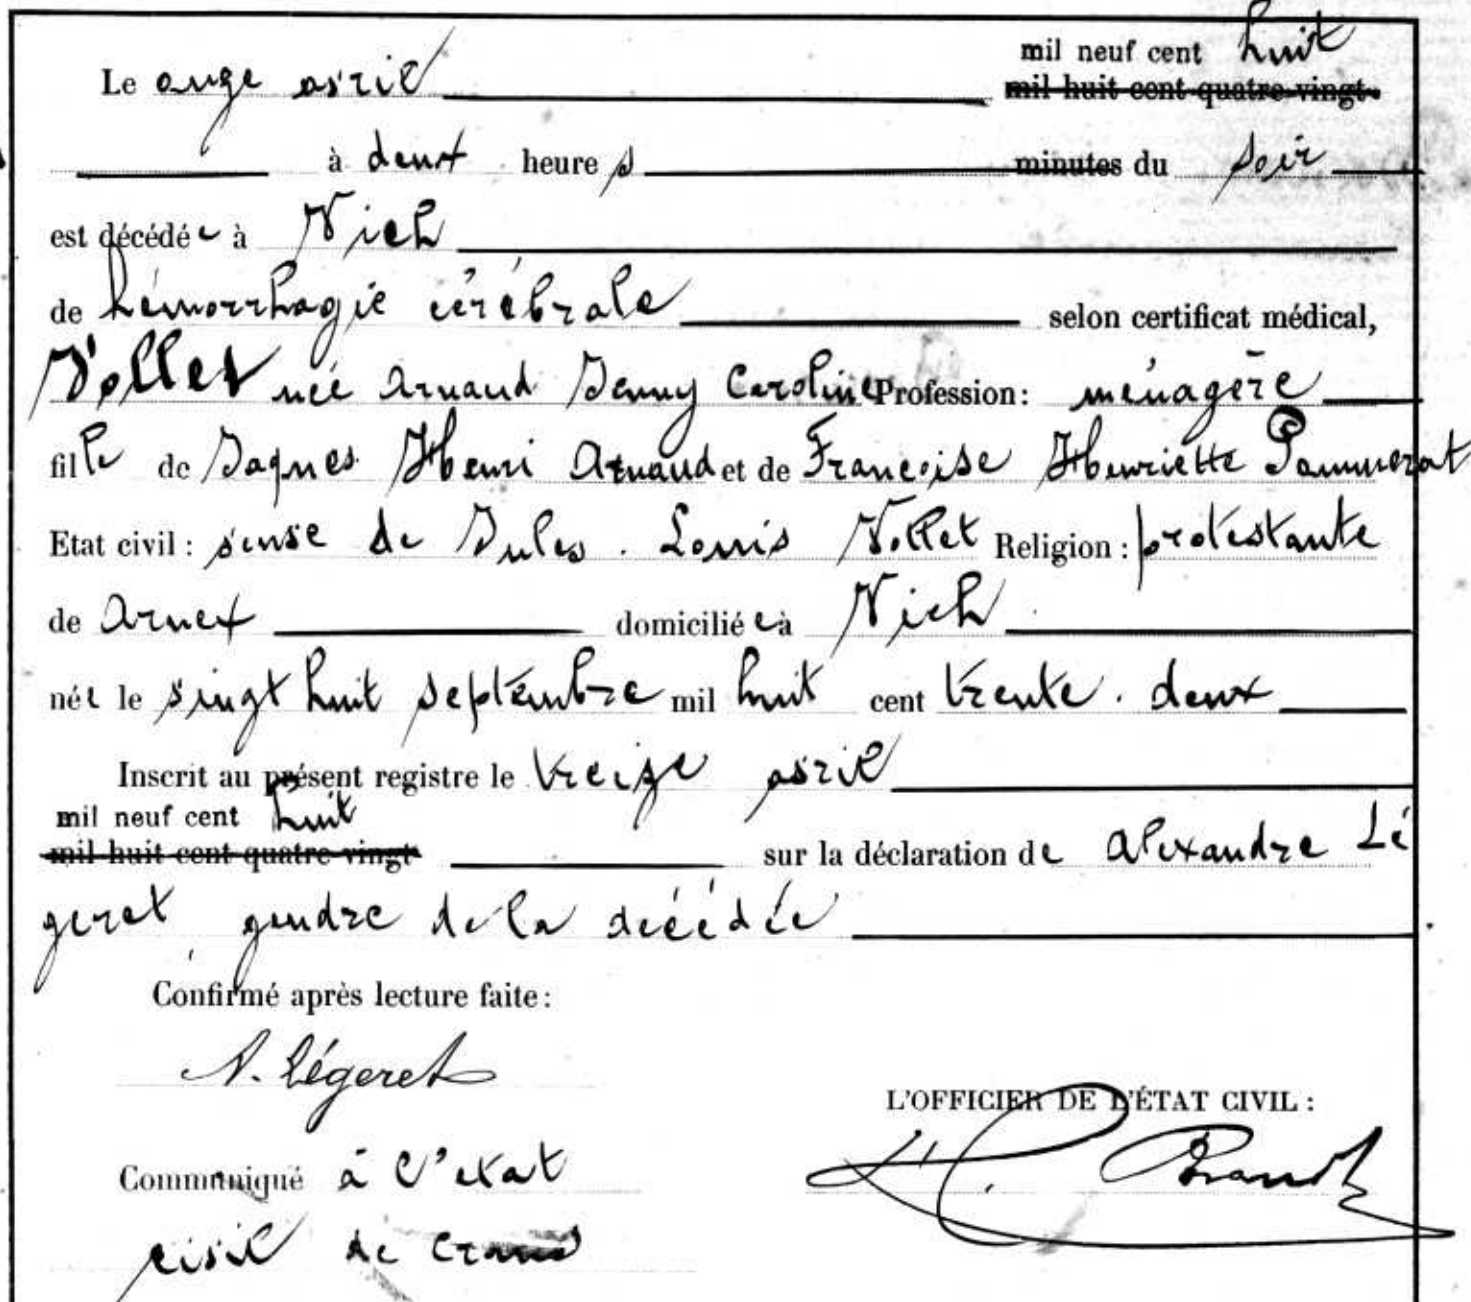 mil neuf cent huit
Le onze avril mil huit cent quatre-vingt-
à deux heures minutes du soir
est décédée à Vich
de hémorrhagie cérébrale selon certificat médical,
Vollet née Arnaud Jenny Caroline Profession: ménagère
fille de Jaques Henri Arnaud et de Françoise Henriette Pommerat
Etat civil: veuve de Jules Louis Vollet Religion: protestante
de Arnex domiciliée à Vich
née le vingt huit septembre mil huit cent trente-deux
Inscrit au présent registre le treize avril
mil neuf cent huit
mil huit cent quatre-vingt- sur la déclaration de Alexandre Lé
geret gendre de la décédée
Confirmé après lecture faite:
A. Légeret
L'OFFICIER DE L'ÉTAT CIVIL:
Communiqué à l'etat
civil de Crans